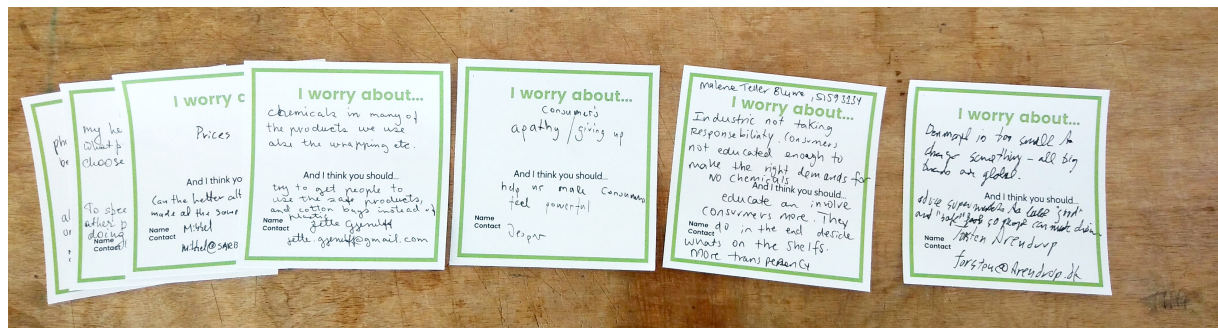 ph
be
al
or
my he
what p
choose
To spee
other p
doing
Name
Contact
I worry
Prices
And I think you
Can the better alt
made at the same
Name
Mithel
Contact
Mithel@SARB
I worry about...
Chemicals in many of
the products we use
also the wrapping etc.
And I think you should...
try to get people to
use the safe products,
and cotton bags instead of
plastic
Name
Contact
Jette
I worry about...
Consumers
apathy / giving up
And I think you should...
help us make consumers
feel powerful
Name
Contact
Jesper
Malene Teller Blume, 51593134
I worry about...
Industric not taking
Responsibility. Consumers
not educated enough to
make the right demands for
NO chemicals
And I think you should...
educate an involve
consumers more. They
Name do in the end decide
Contact
whats on the shelfs.
More transperency
I worry about...
Denmark is too small to
change something - all big
brands are global.
And I think you should...
so people can
Name
Contact
Torsten Arendrup
torsten@Arendrup.dk